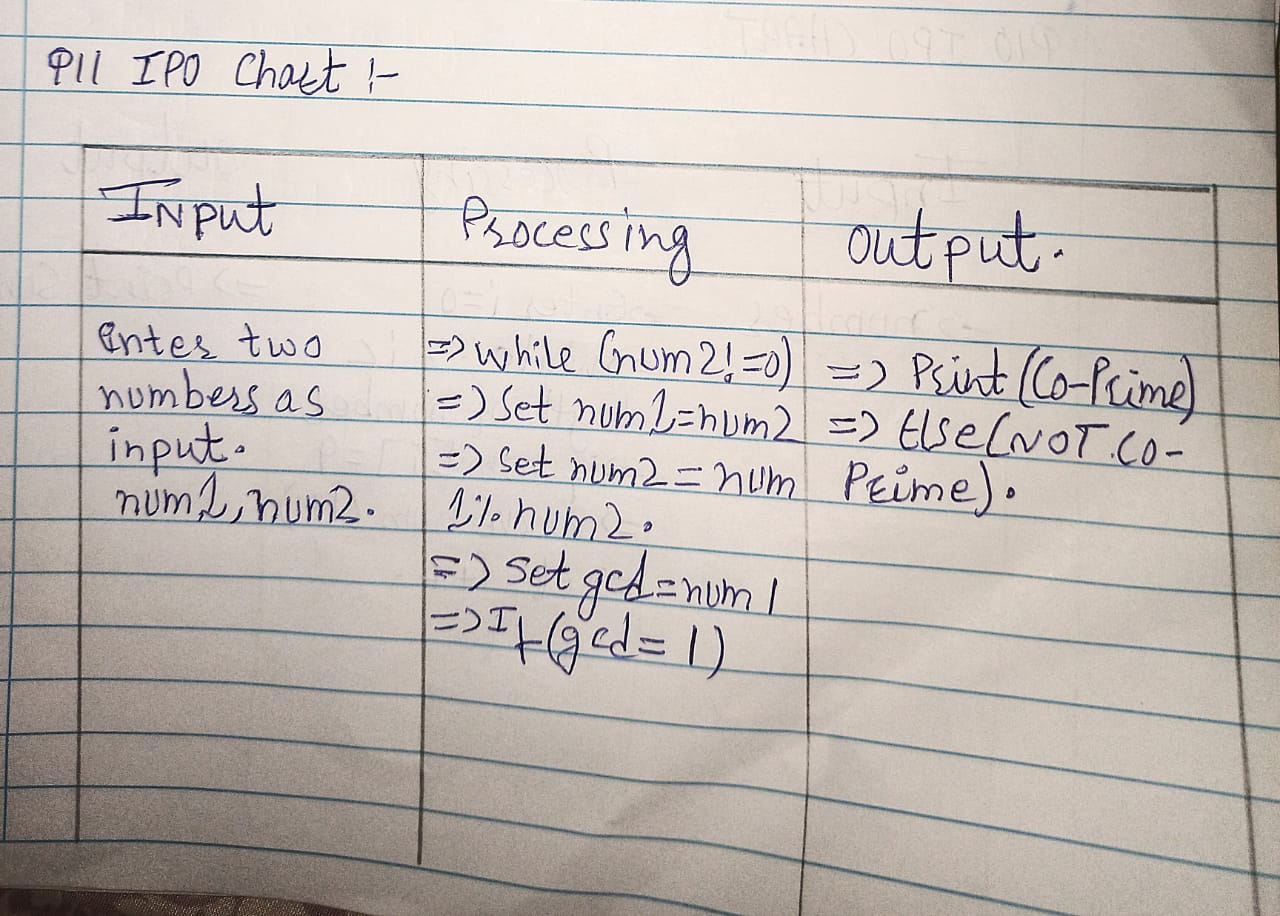 P11 IPO Chart :-
INPUT
Processing
output.
Enter two
numbers as
input.
num1, num2.
=> while (num2!=0)
=> Set num1=num2
=> Set num2 = num
1% num2.
=> Set gcd=num1
=> If (gcd= 1)
=> Print (Co-Prime)
=> Else (NOT CO-
Prime).